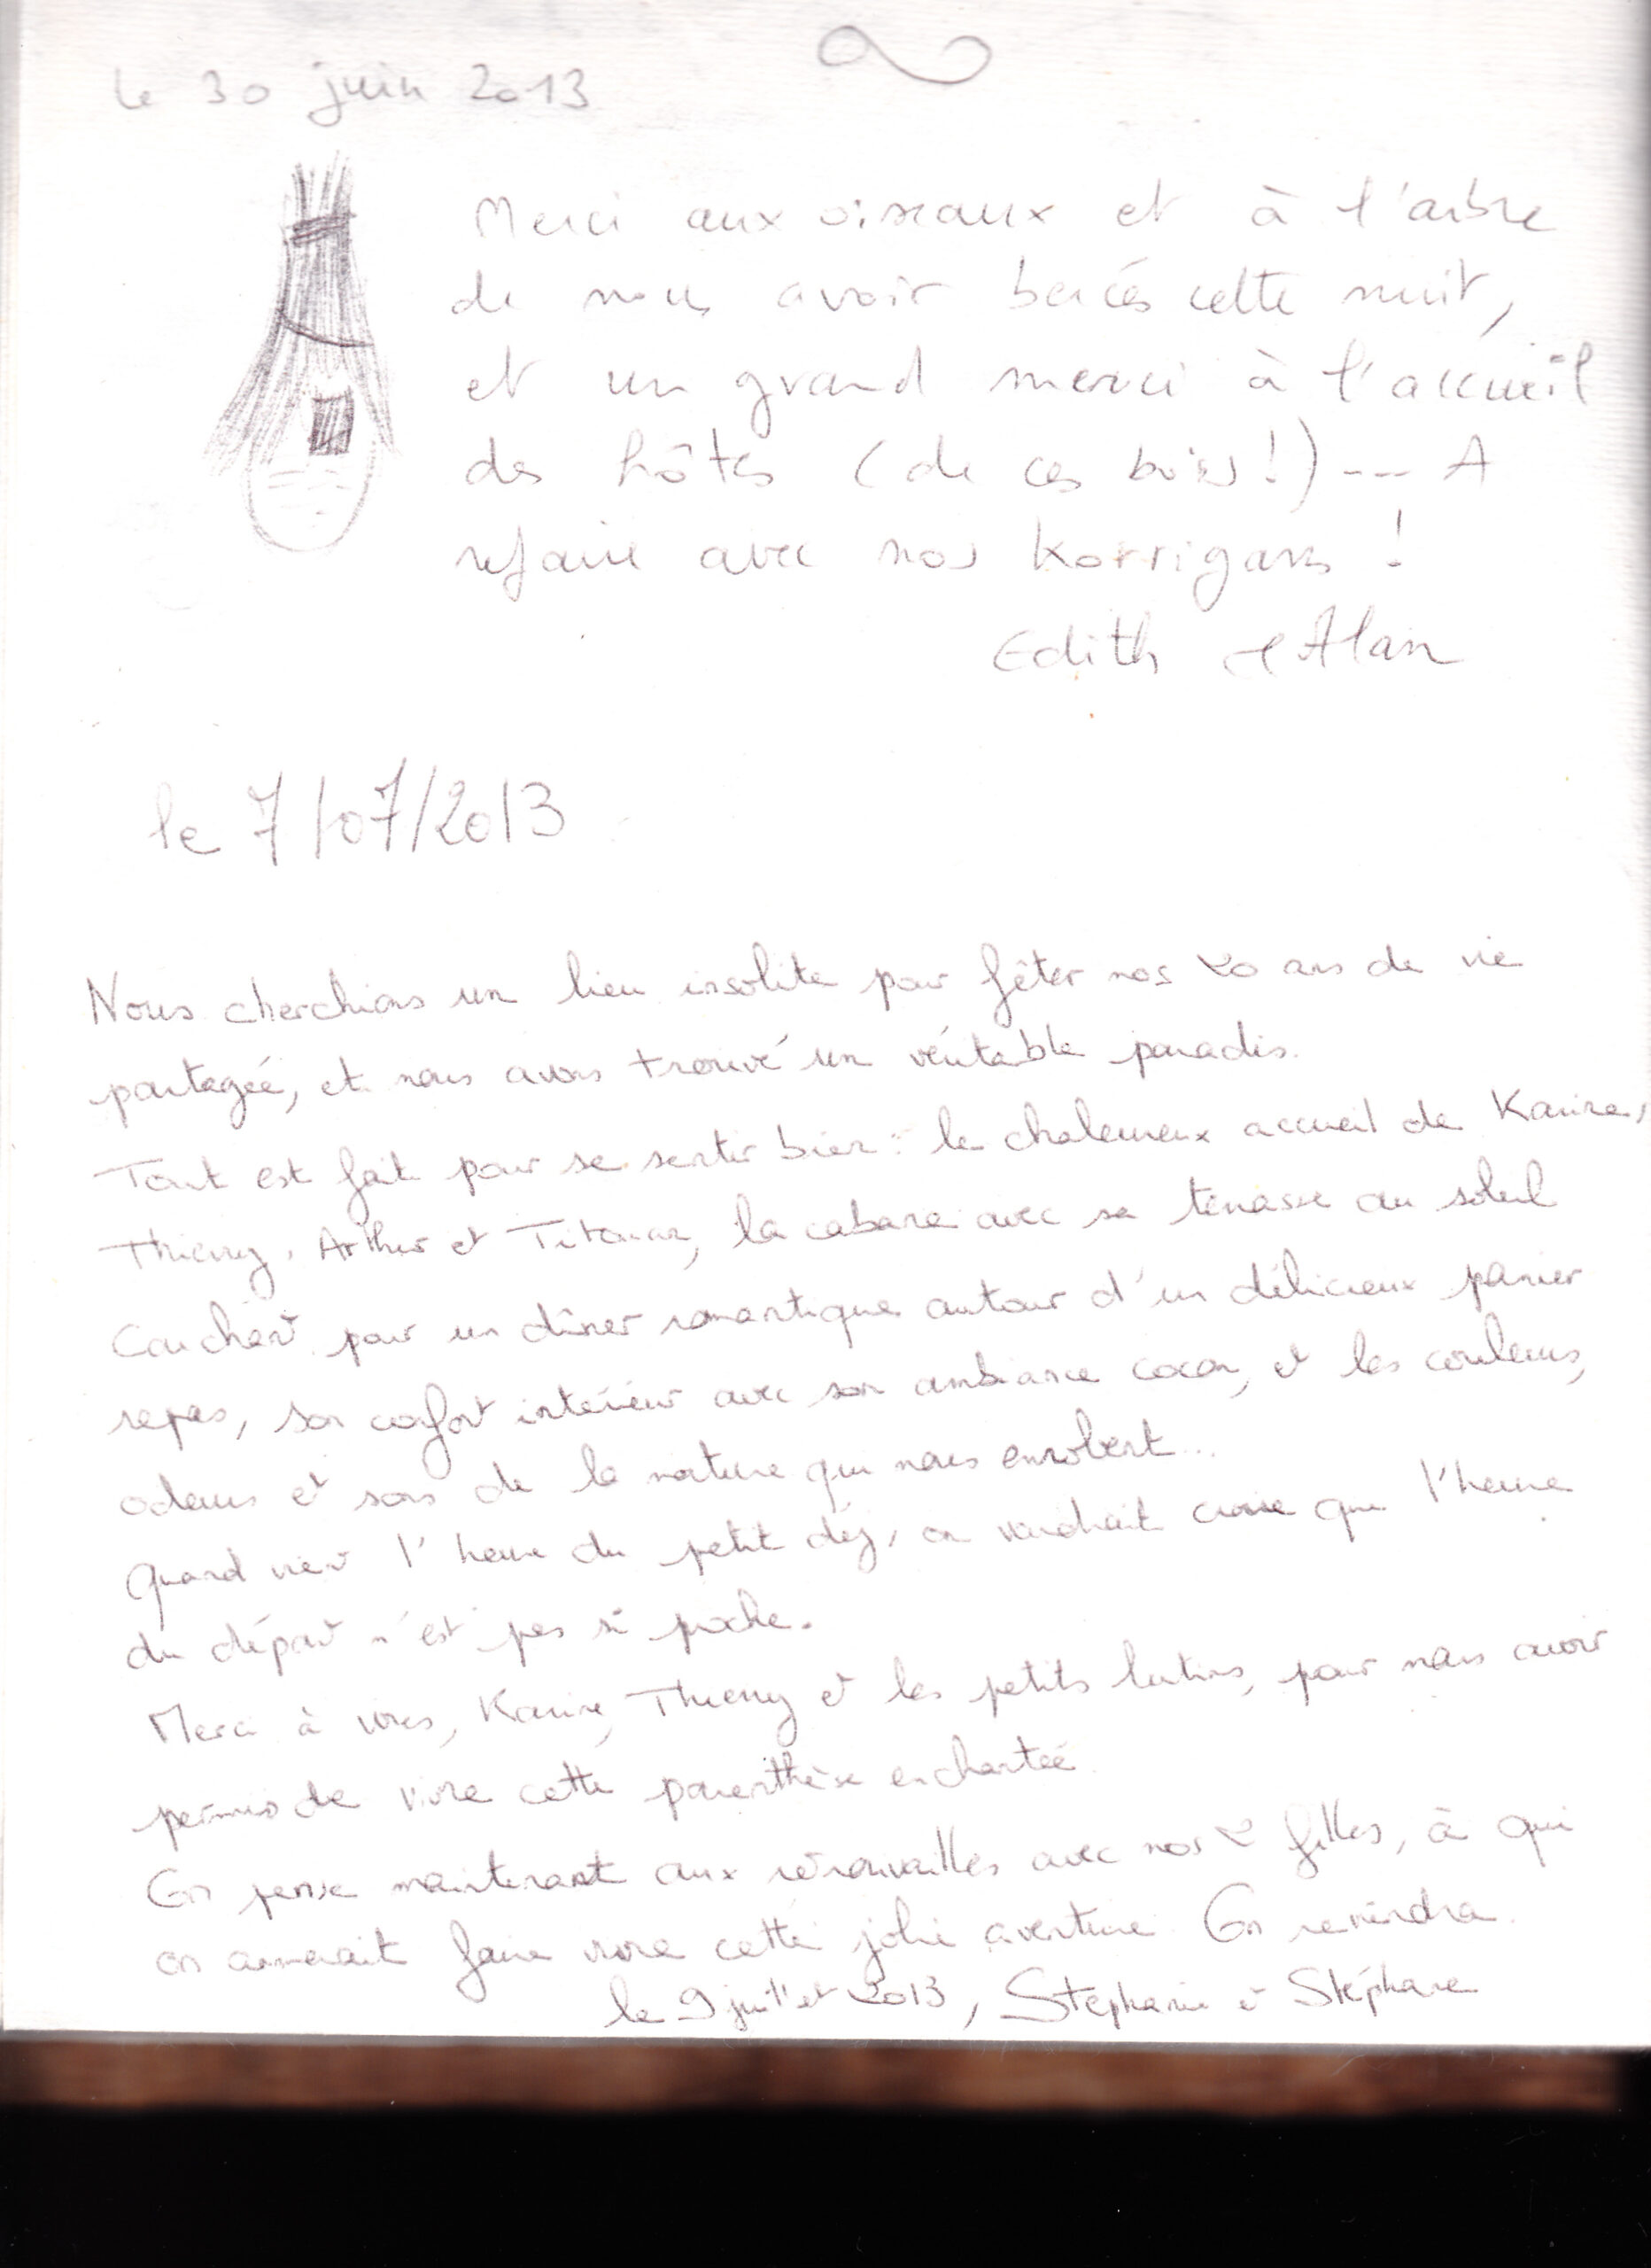 le 30 juin 2013
Merci aux oiseaux et à l'arbre
de nous avoir bercés cette nuit,
et un grand merci à l'accueil
des hôtes (de ces bois!) --- A
refaire avec nos korrigans !
Edith et Alain
le 7/07/2013
Nous cherchions un lieu insolite pour fêter nos 20 ans de vie
partagée, et nous avons trouvé un véritable paradis.
Tout est fait pour se sentir bien : le chaleureux accueil de Karine,
Thierry, Arthur et, la cabane avec sa terrasse au soleil
couchant pour un dîner romantique autour d'un délicieux panier
repas, son confort intérieur avec son ambiance cocon, et les couleurs,
odeurs et sons de la nature qui nous enrobent...
Quand vient l'heure du petit déj, on voudrait croire que l'heure
du départ n'est pas si proche.
Merci à vous, Karine, Thierry et les petits lutins, pour nous avoir
permis de vivre cette parenthèse enchantée.
On pense maintenant aux retrouvailles avec nos 2 filles, à qui
on aimerait faire vivre cette jolie aventure. On reviendra.
le 9 juillet 2013, Stéphanie et Stéphane